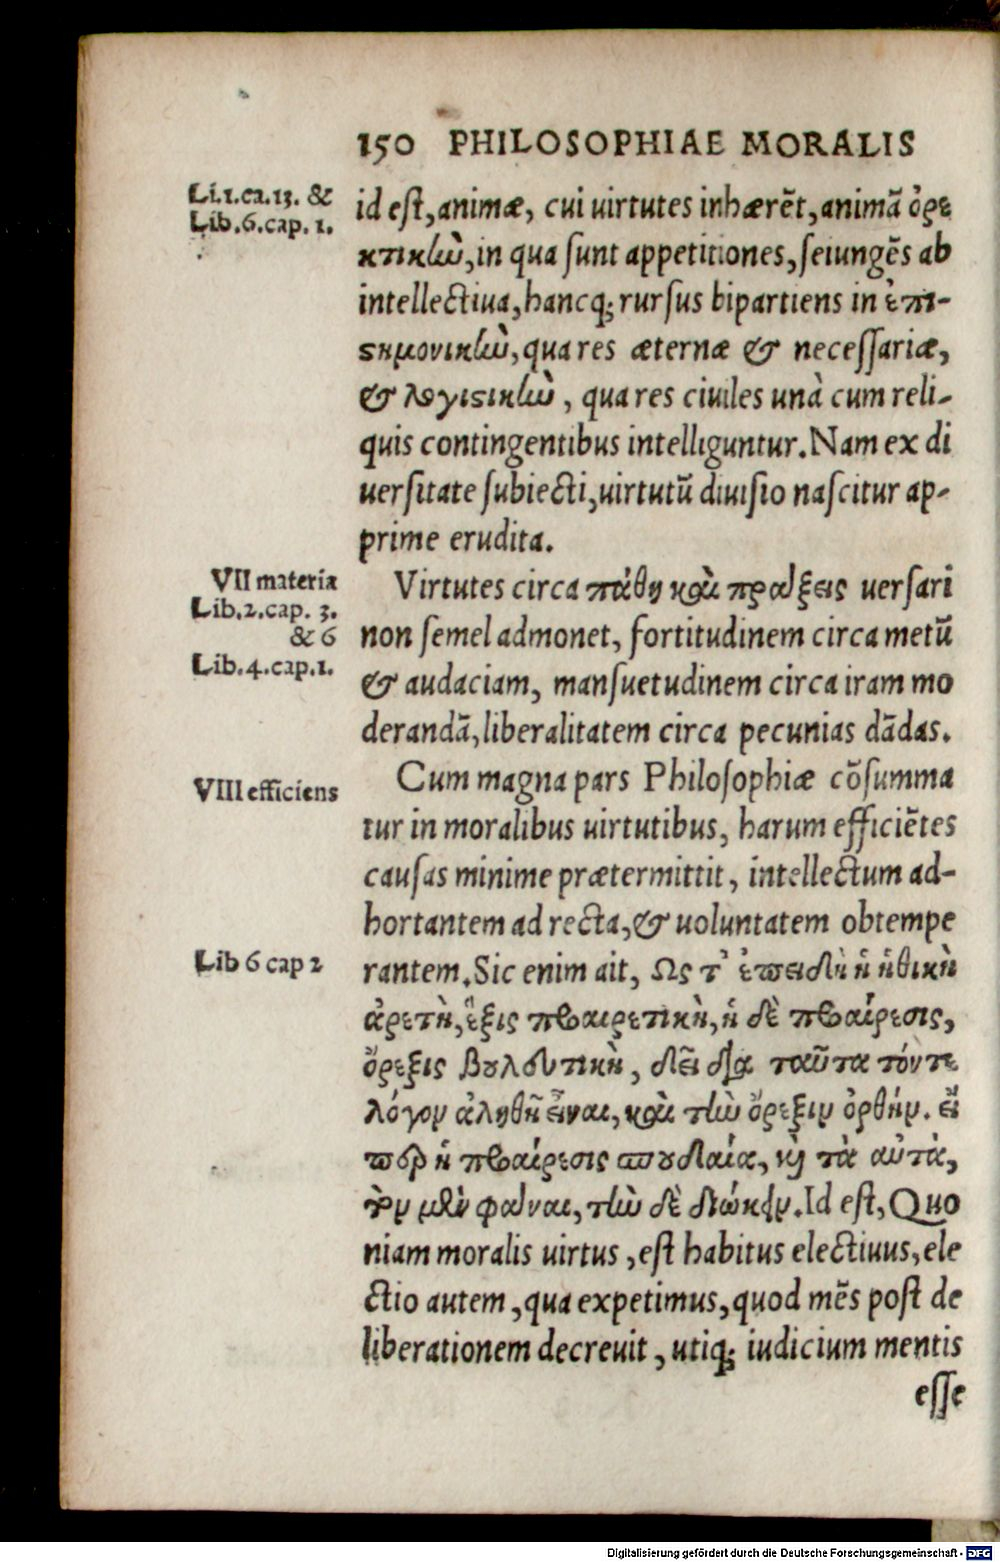 150 PHILOSOPHIAE MORALIS
Li.1.ca.13. &
Lib.6.cap. 1.
id eſt, animæ, cui uirtutes inhærẽt, animã ὀρε
κτικὼ, in qua ſunt appetitiones, ſeiungẽs ab
intellectiua, hancq; rurſus bipartiens in ἐπι-
ςημονικὼ, qua res æternæ & neceſſariæ,
& λογιςικὼ, qua res ciuiles unà cum reli-
quis contingentibus intelliguntur. Nam ex di
uerſitate ſubiecti, uirtutũ diuiſio naſcitur ap-
prime erudita.
VII materia
Lib.2.cap. 3.
& 6
Lib.4.cap.1.
Virtutes circa πάθη καὶ πράξεις uerſari
non ſemel admonet, fortitudinem circa metũ
& audaciam, manſuetudinem circa iram mo
derandã, liberalitatem circa pecunias dãdas.
VIII efficiens
Cum magna pars Philoſophiæ cõſumma
tur in moralibus uirtutibus, harum efficiẽtes
cauſas minime prætermittit, intellectum ad-
hortantem ad recta, & uoluntatem obtempe
Lib 6 cap 2
rantem. Sic enim ait, Ως τ' ἐπειδὴ ἡ ἠθικὴ
ἀρετὴ, ἕξις προαιρετικὴ, ἡ δὲ προαίρεσις,
ὄρεξις βουλευτικὴ, δεῖ δια ταῦτα τόντε
λόγον ἀληθῆ εἶναι, καὶ τὼ ὄρεξιν ὀρθήν. εἴ
περ ἡ προαίρεσις σπουδαία, καὶ τὰ αὐτὰ,
τὸν μὲν φάναι, τὼ δὲ διώκειν. Id eſt, Quo
niam moralis uirtus, eſt habitus electiuus, ele
ctio autem, qua expetimus, quod mẽs poſt de
liberationem decreuit, utiq; iudicium mentis
eſſe
Digitalisierung gefördert durch die Deutsche Forschungsgemeinschaft - DFG